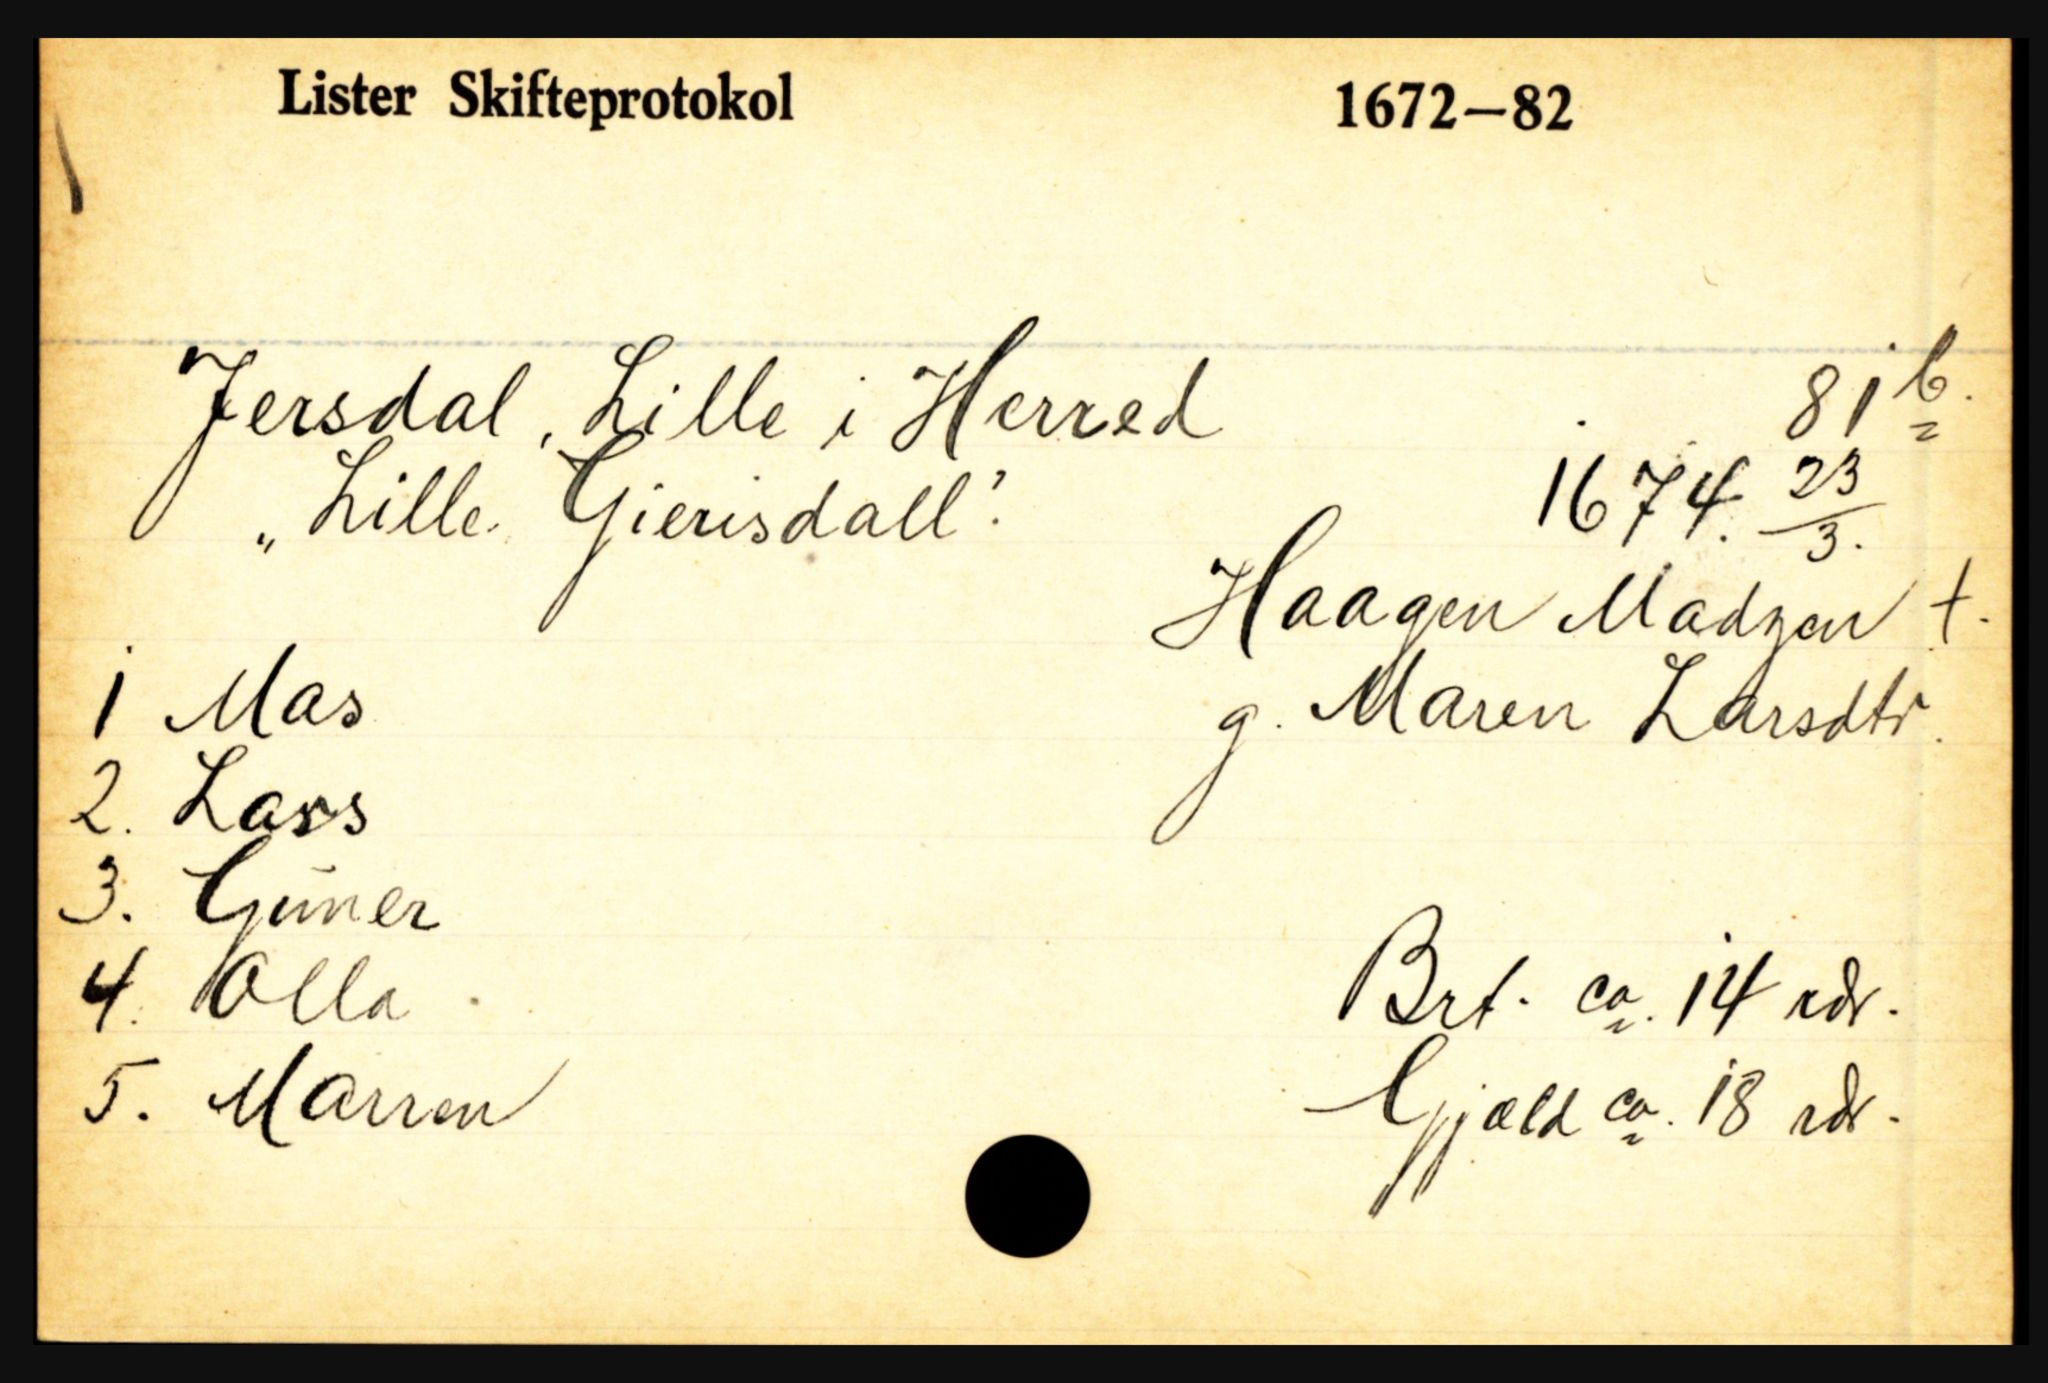 Lister Skifteprotokol 1672—82
Jersdal, Lille i Herred 81 b.
„Lille Gierisdall". 1674. 23/3.
Haagen Madzen †.
g. Maren Larsdtr.
1 Mas
2. Lars
3. Gūner
4. Olla
5. Marren
Brt. ca. 14 rdr.
Gjæld ca. 18 rdr.